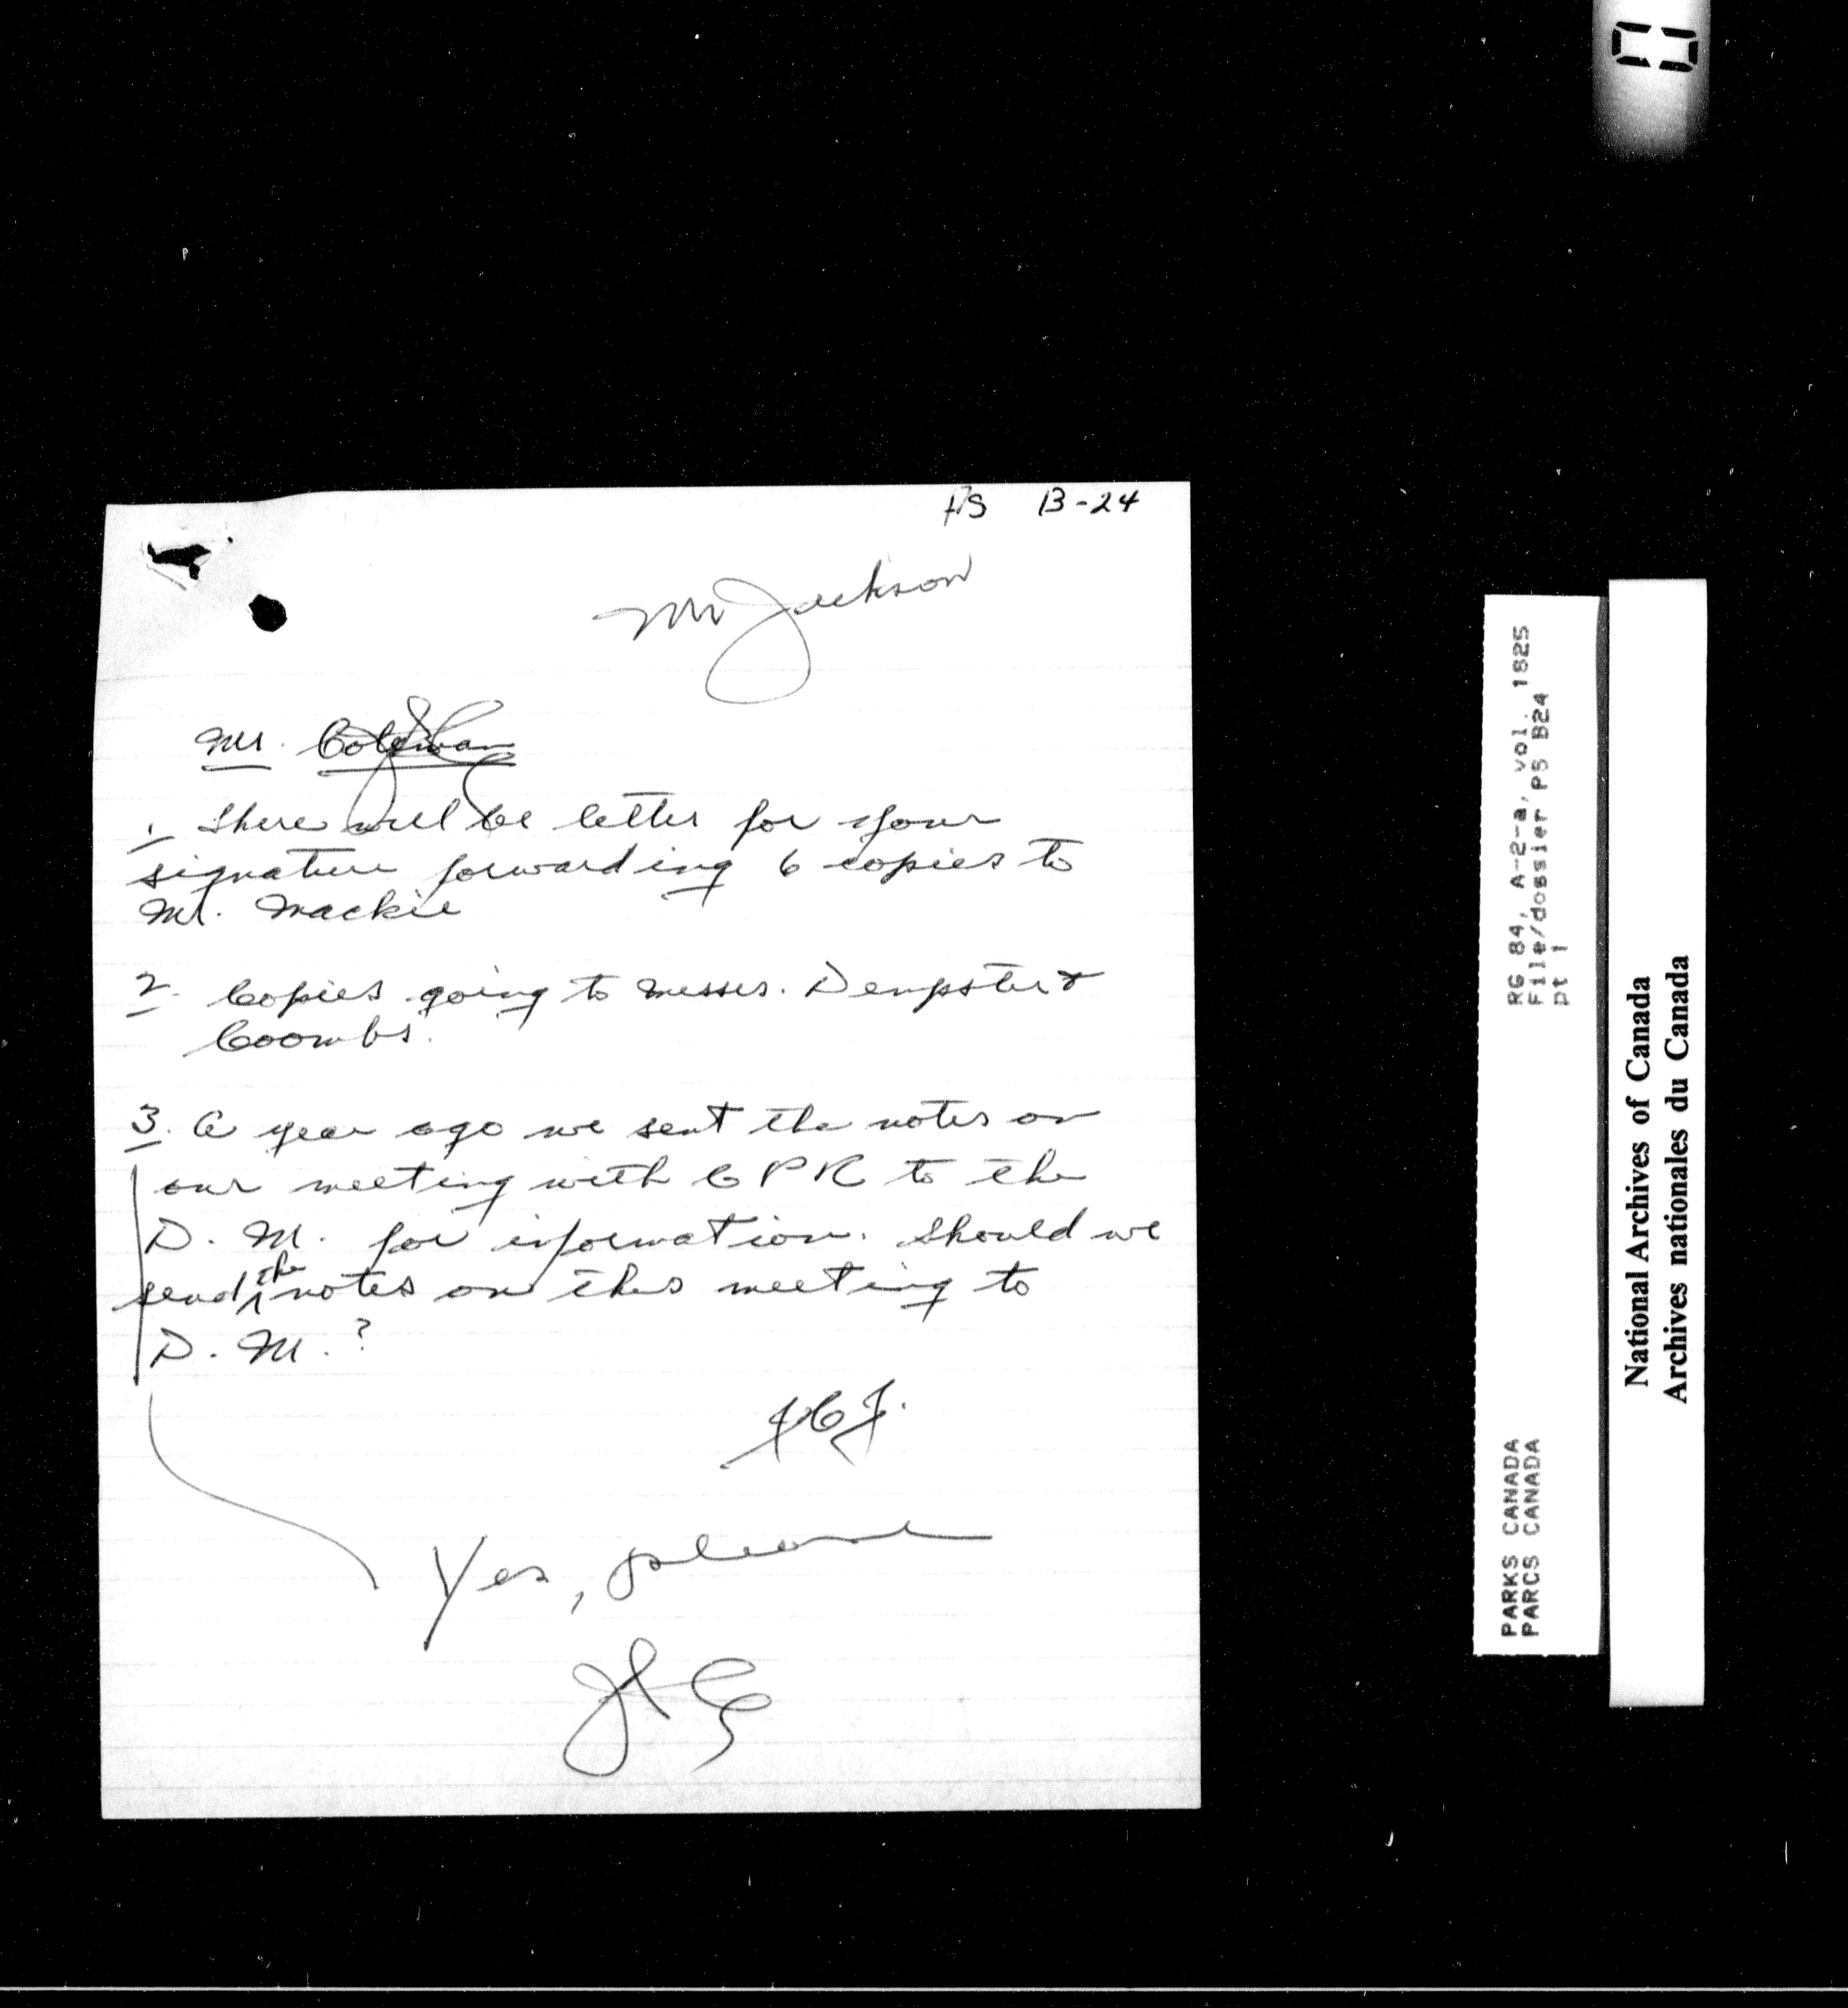 PS B-24
Mr Jackson
Mr. Coleman
1. There will be letter for your
signature forwarding 6 copies to
Mr. Mackie
2. Copies going to Messrs. Dempster &
Coombs.
3. A year ago we sent the notes on
our meeting with CPR to the
D. M. for information. Should we
send the notes on this meeting to
D. M. ?
Yes, please
RG 84, A-2-a, vol. 1825
File/dossier PS B24
pt 1
PARKS CANADA
PARCS CANADA
National Archives of Canada
Archives nationales du Canada